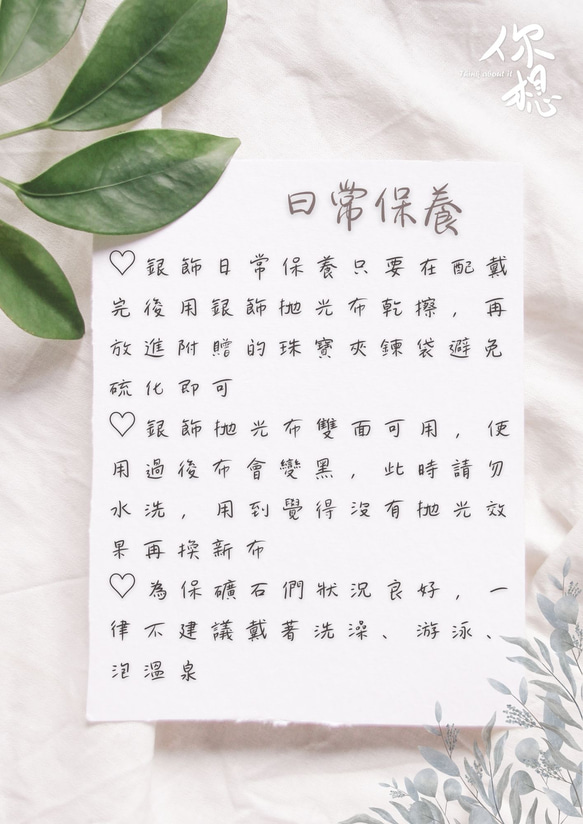 你想
Think about it
日常保養
♡銀飾日常保養只要在配戴
完後用銀飾拋光布乾擦，再
放進附贈的珠寶夾鍊袋避免
硫化即可
♡銀飾拋光布雙面可用，使
用過後布會變黑，此時請勿
水洗，用到覺得沒有拋光效
果再換新布
♡為保礦石們狀況良好，一
律不建議戴著洗澡、游泳、
泡溫泉